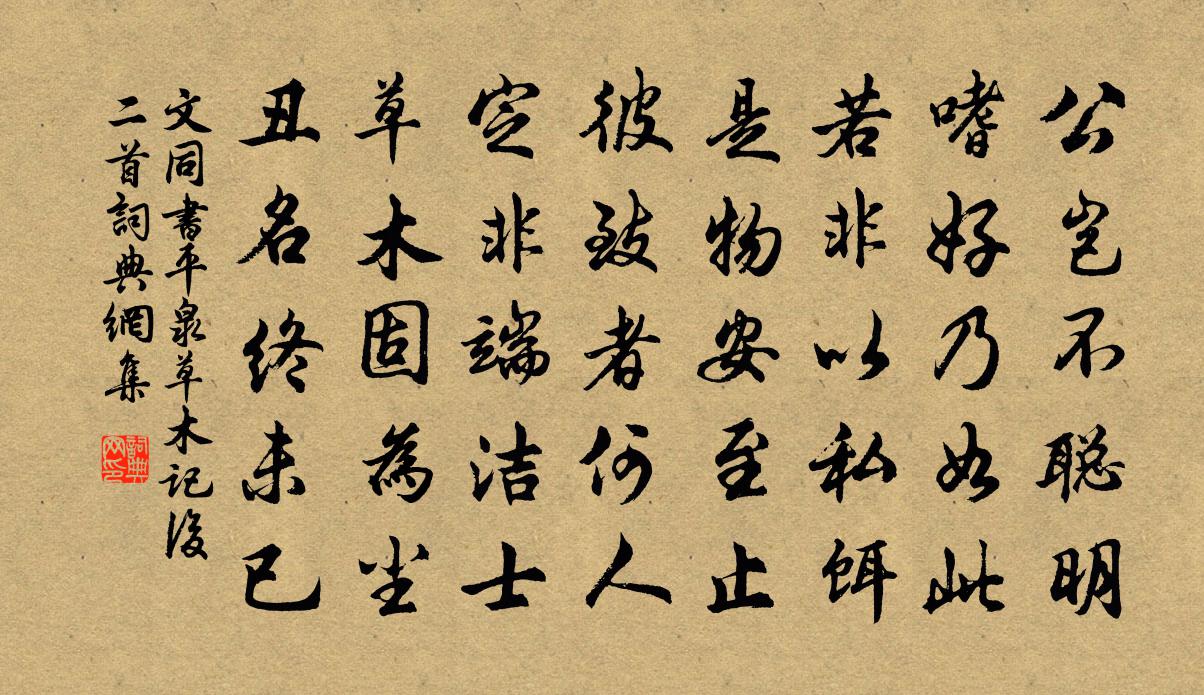 公岂不聪明
嗜好乃如此
若非以私饵
是物安至止
彼致者何人
定非端洁士
草木固為尘
丑名终未已
文同書平泉草木记後
二首詞典網集
詞典網印